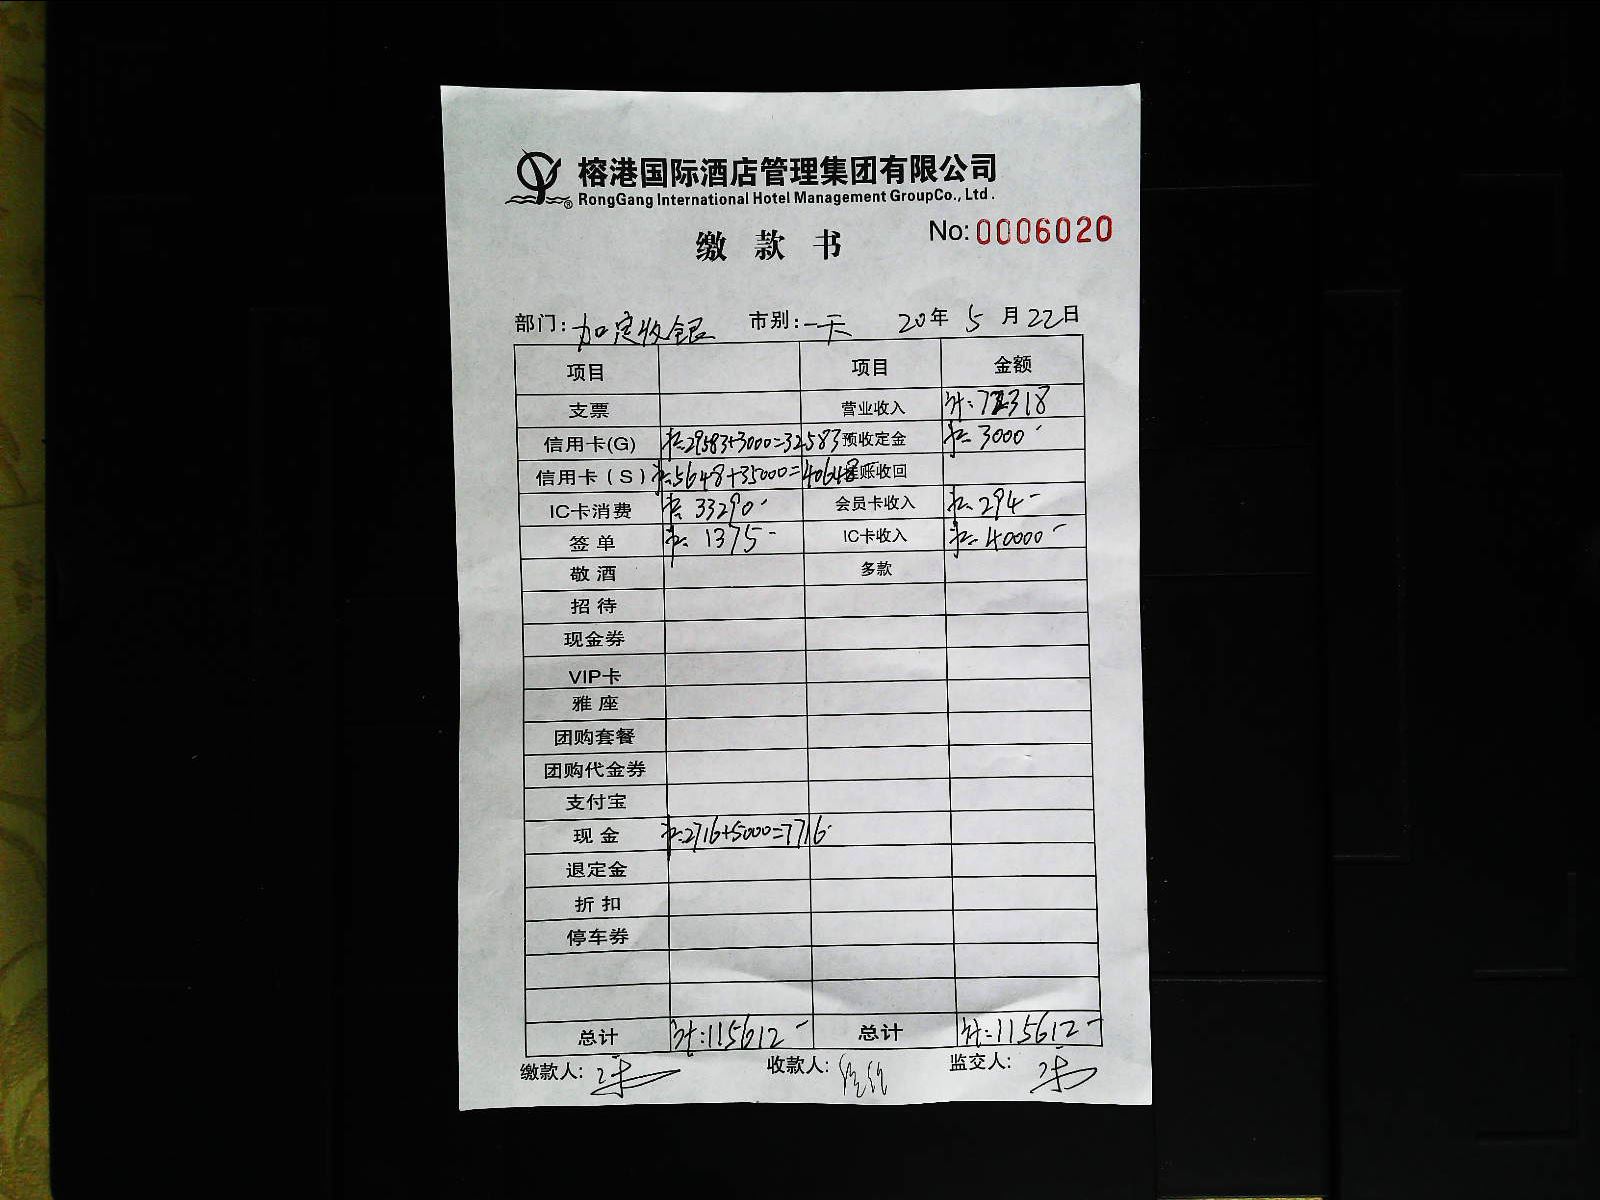 榕港国际酒店管理集团有限公司
RongGang International Hotel Management GroupCo., Ltd.
No: 0006020
缴款书
部门: 加定收银 市别: 一天 20年 5月 22日
项目 项目 金额
支票 营业收入 计: 72318
信用卡(G) 29583+3000=32583 预收定金 3000-
信用卡(S) 5648+35000=40648 账收回
IC卡消费 33290- 会员卡收入 294-
签单 1375- IC卡收入 40000-
敬酒 多款
招待
现金券
VIP卡
雅座
团购套餐
团购代金券
支付宝
现金 2716+5000=7716-
退定金
折扣
停车券
总计 计: 115612- 总计 计: 115612-
缴款人: 收款人: 监交人: